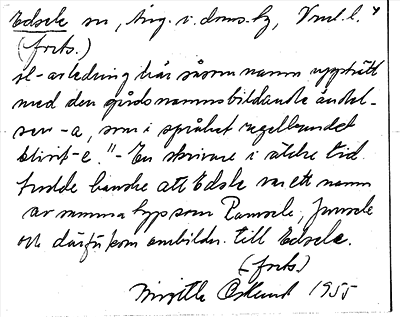 Edsele sn, Ång. v. doms. hg, Vnul. l. 4
(forts.)
sl-avledning har såsom namn uppträtt
med den gårdsnamnsbildande ändel-
sen -a, som i språket regelbundet
blivit -e." - En skrivare i äldre tid
trodde kanske att Edsle var ett namn
av samma typ som Ramsele, Junsele
och därför kom ombildn. till Edsele.
(forts)
Birgitta Östlund 1955